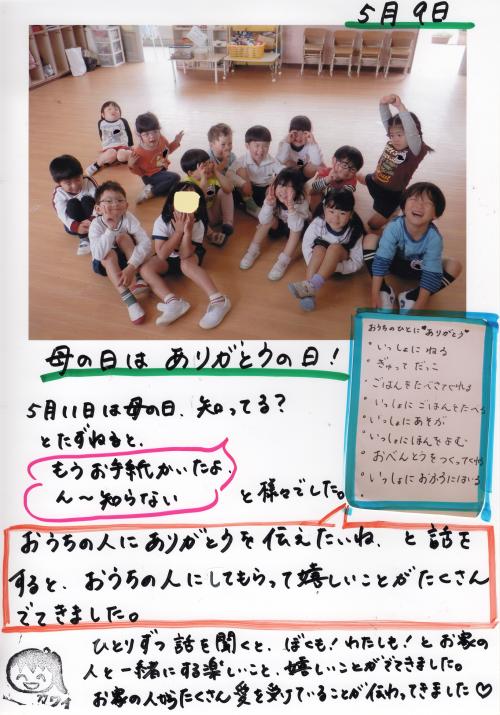 5月9日
母の日は ありがとうの日！
おうちのひとに♥ありがとう♥
• いっしょに ねる
• ぎゅって だっこ
• ごはんをたべさせてくれる
• いっしょに ごはんをたべる
• いっしょに あそぶ
• いっしょにほんをよむ
• おべんとうをつくってくれる
• いっしょに おふろにはいる
5月11日は母の日、知ってる？
とたずねると、
もうお手紙かいたよ、
ん〜知らない
と様々でした。
おうちの人にありがとうを伝えたいね、と話を
すると、おうちの人にしてもらって嬉しいことがたくさん
でてきました。
ひとりずつ話を聞くと、ぼくも！わたしも！とお家の
人と一緒にする楽しいこと、嬉しいことがでてきました。
お家の人からたくさん愛を受けていることが伝わってきました♡
カワイ